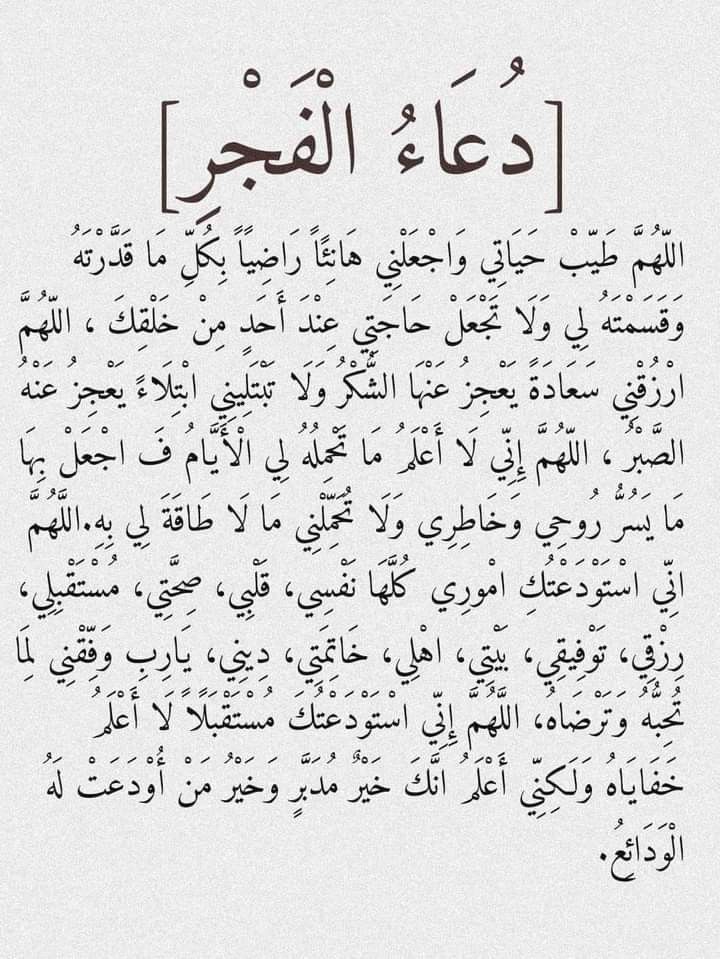 [دُعَاءُ الْفَجْرِ]
اللّهُمَّ طَيّبْ حَيَاتِي وَاجْعَلْنِي هَانِئًاً رَاضِيَاً بِكُلِّ مَا قَدَّرْتَهُ
وَقَسَمْتَهُ لِي وَلَا تَجْعَلْ حَاجَتِي عِنْدَ أَحَدٍ مِنْ خَلْقِكَ ، اللّهُمَّ
ارْزُقْنِي سَعَادَةً يَعْجِزُ عَنْهَا الشُّكْرُ وَلَا تَبْتَلِينِي ابْتِلَاءً يَعْجِزُ عَنْهُ
الصَّبْرُ ، اللّهُمَّ إِنّي لَا أَعْلَمُ مَا تَحْمِلُهُ لِي الْأَيَّامُ فَ اجْعَلْ بِهَا
مَا يَسُرُّ رُوحِي وَخَاطِرِي وَلَا تُحَمّلْنِي مَا لَا طَاقَةَ لِي بِهِ.اللَّهُمَّ
انِّي اسْتَوْدَعْتُكِ امْورِي كُلَّهَا نَفْسِي، قَلْبِي، صِحَّتِي، مُسْتَقْبِلِي،
رِزْقِي، تَوْفِيقِي، بَيْتِي، اهْلِي، خَاتِمَتِي، دِينِي، يَارِبِ وَفِّقْنِي لِمَا
تُحِبُّهُ وَتَرْضَاهُ، اللَّهُمَّ إِنِّي اسْتَوْدَعْتُكَ مُسْتَقْبَلًاً لَا أَعْلَمُ
خَفَايَاهُ وَلَكِنِّي أَعْلَمُ انَّكَ خَيْرٌ مُدَبَّرٍ وَخَيْرُ مَنْ أُوْدَعَتْ لَهُ
الْوَدَائِعُ.